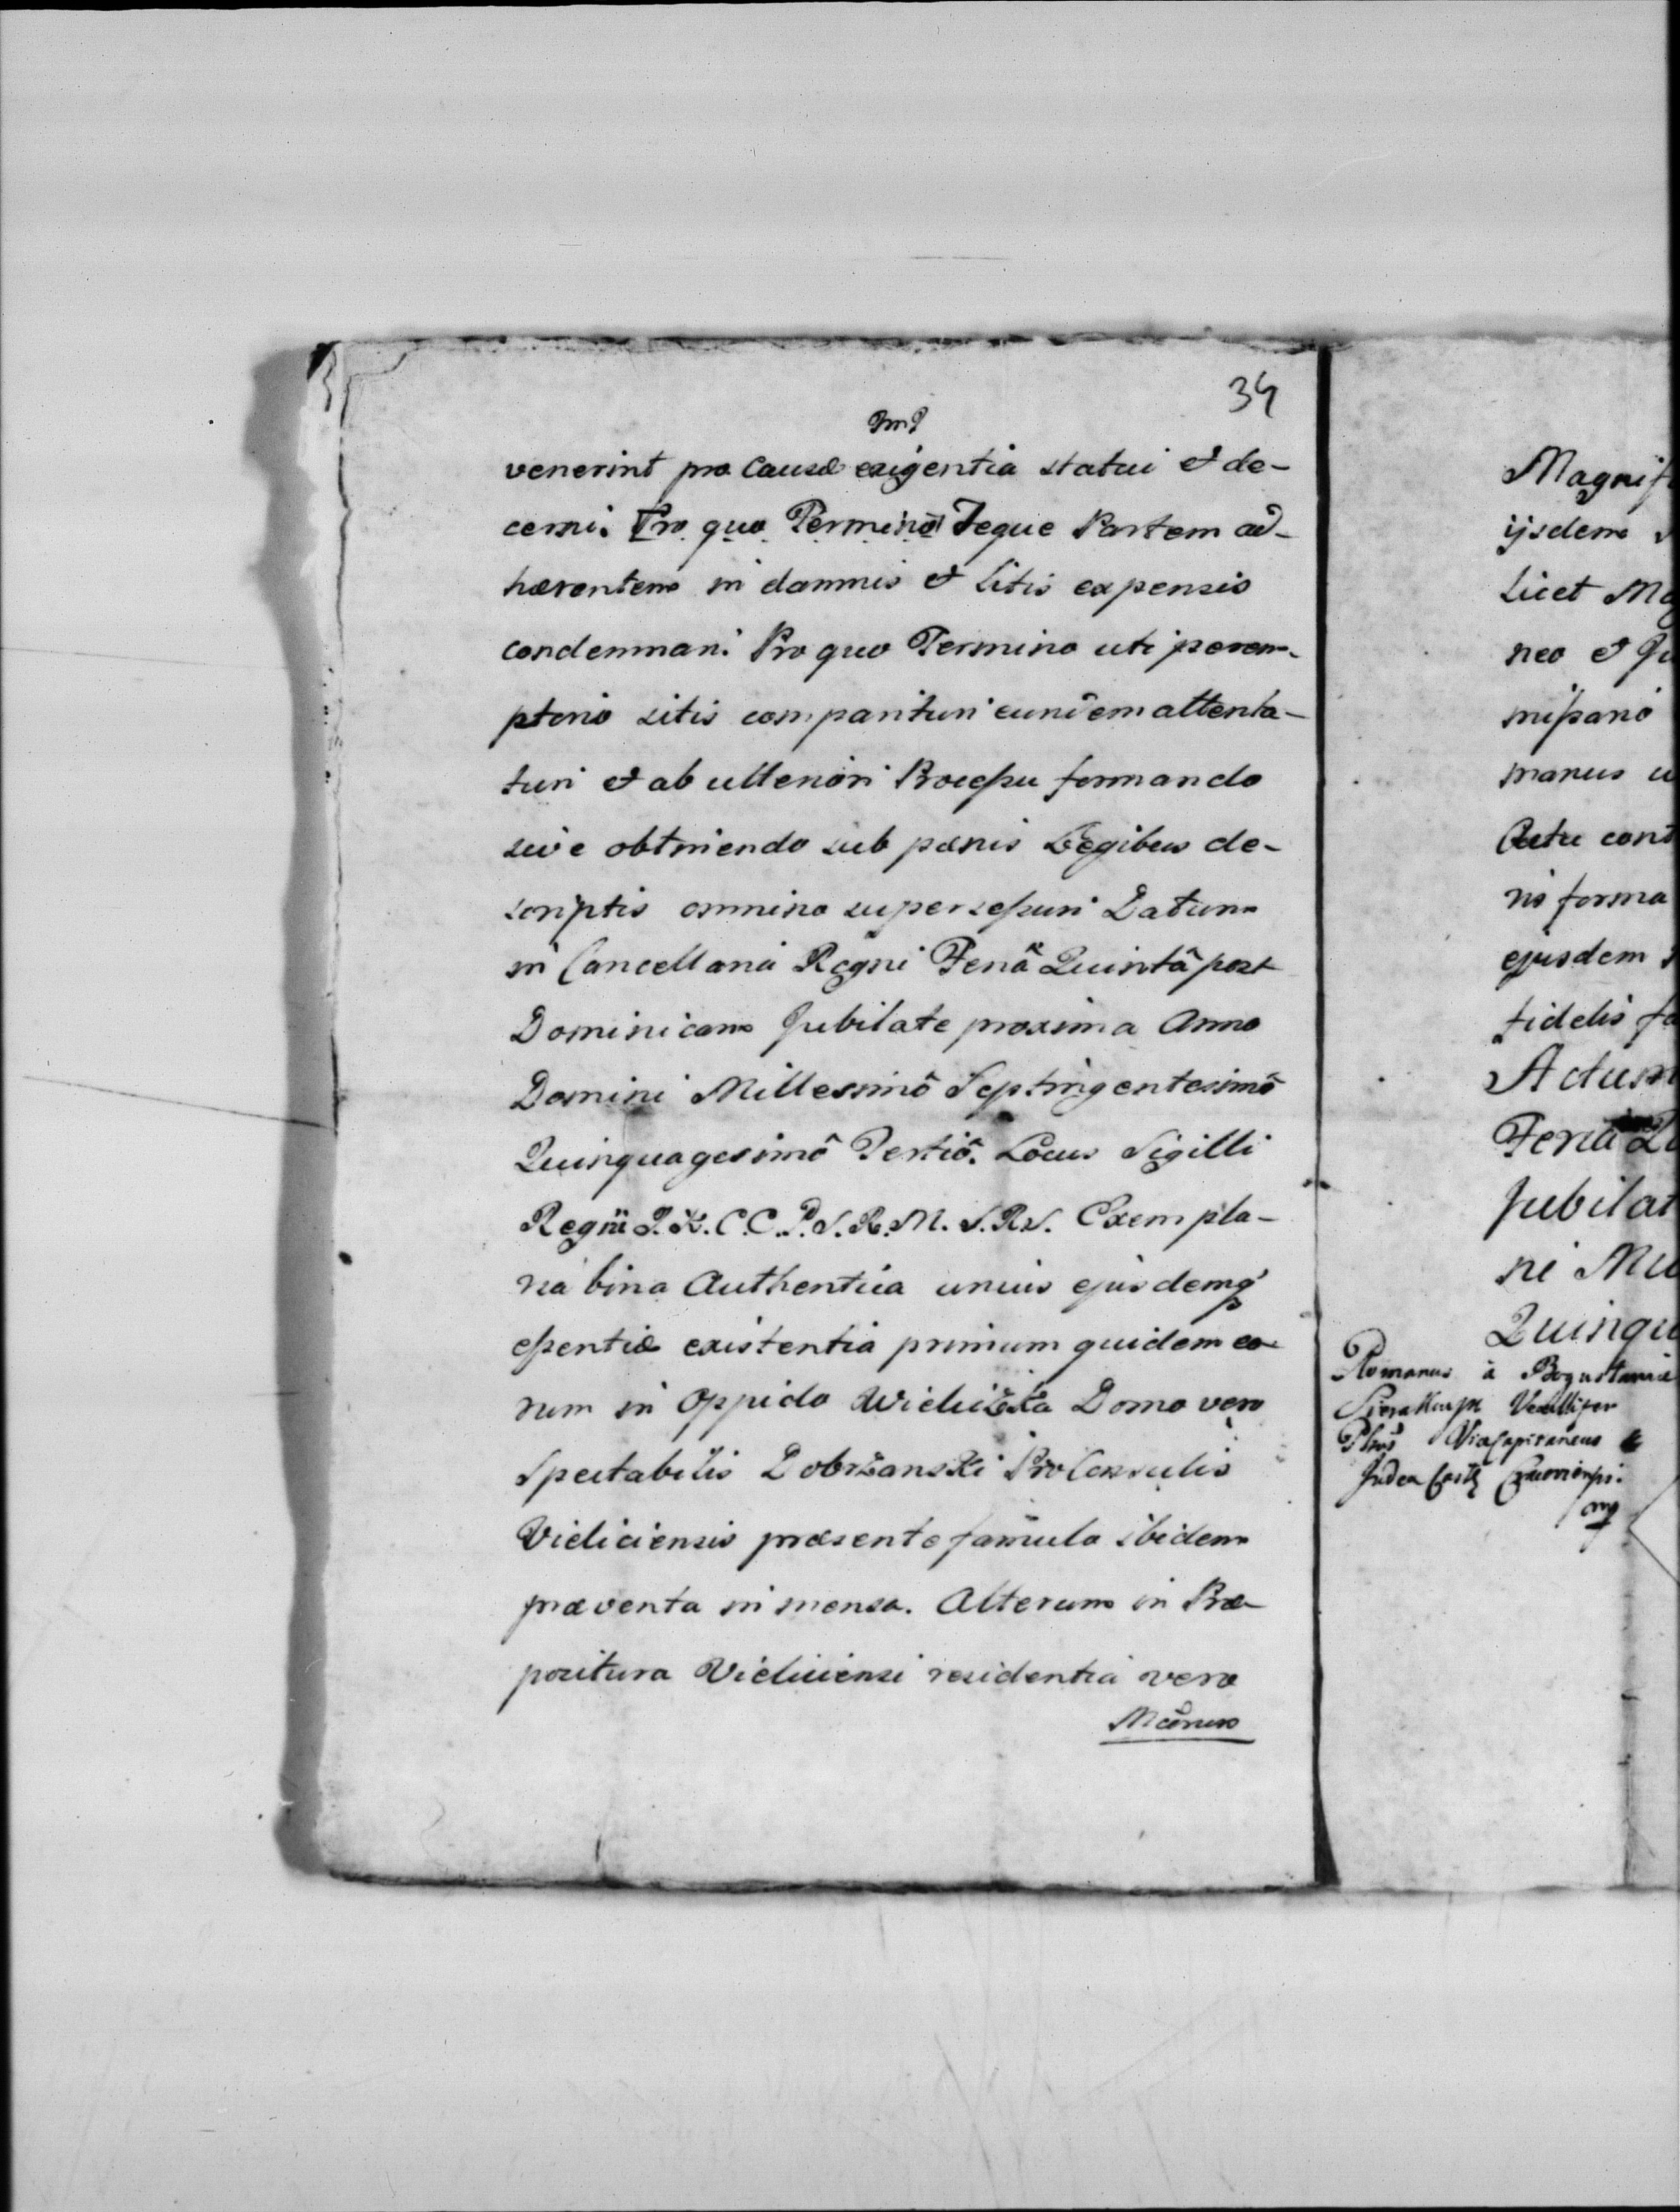 34
venerint pro causæ exigentia statui et de-
cerni. Pro quo Terminô Teque Partem ad-
hærentem in damnis et Litis expensis
condemnari. Pro quo Termino uti perem-
ptorio sitis comparituri eundem attenta-
turi et ab ulteriori Processu formando
sive obtinendo sub pœnis Legibus de-
scriptis omnino supersessuri Datum
in Cancellaria Regni Feriâ Quintâ post
Dominicam Jubilate proxima Anno
Domini Millesimô Septingentesimô
Quinquagesimô Tertiô. Locus Sigilli
Regni P. K. C. C. P. S. R. M. S. RS. Exempla-
ria bina Authentica unius ejusdemq
essentiæ existentia primum quidem eo-
rum in Oppido Wieliczka Domo vero
Spectabilis Dobrzanski ProConsulis
Vieliciensis præsente famula ibidem
præventa in mensa. Alterum in Præ-
positura Vieliciensi residentia vero
Magnif
ijsdem
Licet Ma
neo et Ju
missario
manus
Actu cont
ris forma
ejusdem
fidelis fa
Actum
Feria
Jubilat
ni
Quinqu
Romanus à Bogustawice
Sierakowski Vexillifer
ViceCapitaneus &
Judex Castr Cracoviensis